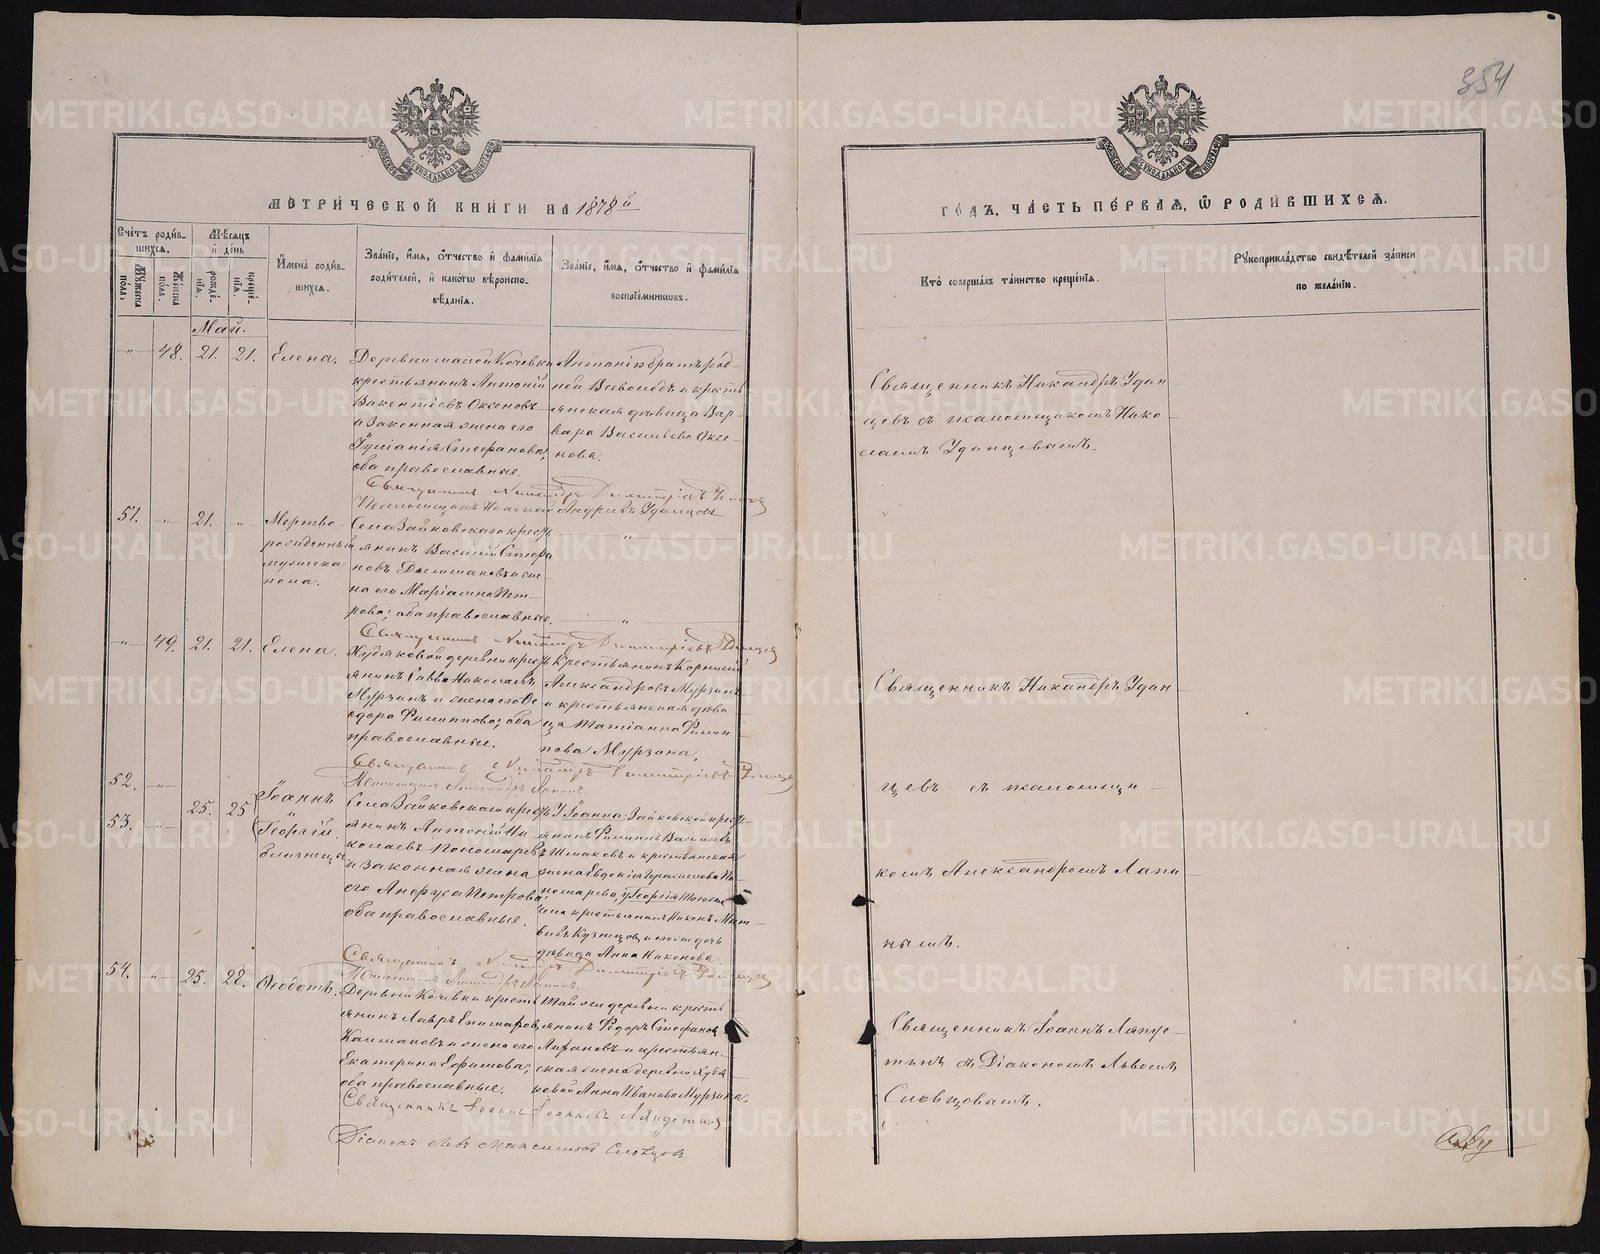 354
МЕТРИЧЕСКОЙ КНИГИ НА 1878й
ГОДЪ, ЧАСТЬ ПЕРВАЯ, Ѡ РОДИВШИХСЯ.
Счетъ родив-
шихся.
Мужеска
пола.
Женска
пола.
Мѣсяцъ
и день
рожде-
нія.
креще-
нія.
Имена родив-
шихся.
Званіе, имя, отчество и фамилія
родителей, и какогѡ вѣроиспо-
вѣданія.
Званіе, имя, отчество и фамилія
воспріемниковъ.
Кто совершалъ таинство крещенія.
Рукоприкладство свидѣтелей записи
по желанію.
Май.
" 48. 21. 21. Елена.
Деревни малой Кочевки
крестьянинъ Антоній
Викентіевъ Оксеновъ
и законная жена его
Стефанова,
оба православные.
Антонія братъ род-
ной Всеволодъ и кресть-
янская дѣвица Вар-
вара Васильева Оксе-
нова.
Священникъ Никандръ Удин
цевъ съ псаломщикомъ Нико-
лаемъ Удинцевымъ.
Священникъ Никандръ Димитріевъ Удинцев
Псаломщикъ Николай Андреевъ Удинцовъ
51. " 21. "
Мертво-
рожденный
мужеска
пола.
Села Зайковскаго кресть-
янинъ Василій Стефа
новъ и же-
на его Маріамна Пет-
рова; оба православные.
Священникъ Никандръ Димитріевъ Удинцев
" 49. 21. 21. Елена.
Худяковой деревни крест
янинъ Савва Николаевъ
Мурзинъ и жена его Ѳе-
одора Филиппова; оба
православные.
Крестьянинъ Корнилій
Александровъ Мурзинъ
и крестьянская дѣви
ца Татіанна Филип
пова Мурзина.
Священникъ Никандръ Удин-
цевъ съ псаломщи-
комъ Александромъ Лапи-
нымъ.
Священникъ Никандръ Димитріевъ Удинцев
Псаломщикъ Александръ Лапинъ.
52. "
53. "
25. 25
Іоаннъ
и
Георгій.
близнецы
Села Зайковскаго крест-
янинъ Антоній Ни-
колаевъ Пономаревъ
и законная жена
его Анфуса Петрова
оба православные.
У Іоанна: Зайковской крест-
янинъ Филиппъ Васильевъ
Шмаковъ и крестьянская
жена Евдокія Герасимова По-
номарева, у Георгія тогоже
села крестьянинъ Никонъ Мат-
вѣевъ Кузнецовъ и его же дочь
дѣвица Анна Никонова.
Священникъ Никандръ Димитріевъ Удинцев
Псаломщикъ Александръ Лапинъ.
54. " 25. 28. Ѳеодотъ.
Деревни Кочевки кресть
янинъ Лавръ Епимаховъ
Калмаковъ и жена его
Екатерина Ефимова;
оба православные.
Той же деревни кресть
янинъ Ѳедоръ Стефановъ
и крестьян-
ская жена деревни Худя
ковой Анна Иванова Мурзина.
Священникъ Іоаннъ Ляпус-
тинъ съ Діакономъ Львомъ
Словцовымъ.
Священникъ Іоаннъ Іоанновъ Ляпустинъ
Діаконъ Левъ Максимовъ Словцовъ
METRIKI.GASO-URAL.RU